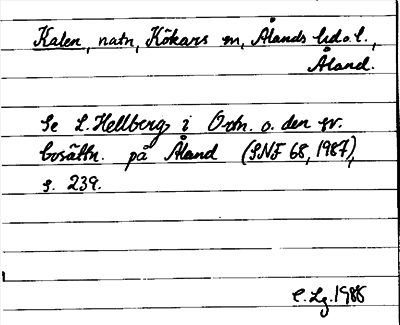 Kalen, natn, Kökars sn, Ålands hd o. l.,
Åland.
Se L. Hellberg i Ortn. o. den sv.
bosättn. på Åland (SNF 68, 1987),
s. 239.
C. Lg. 1988